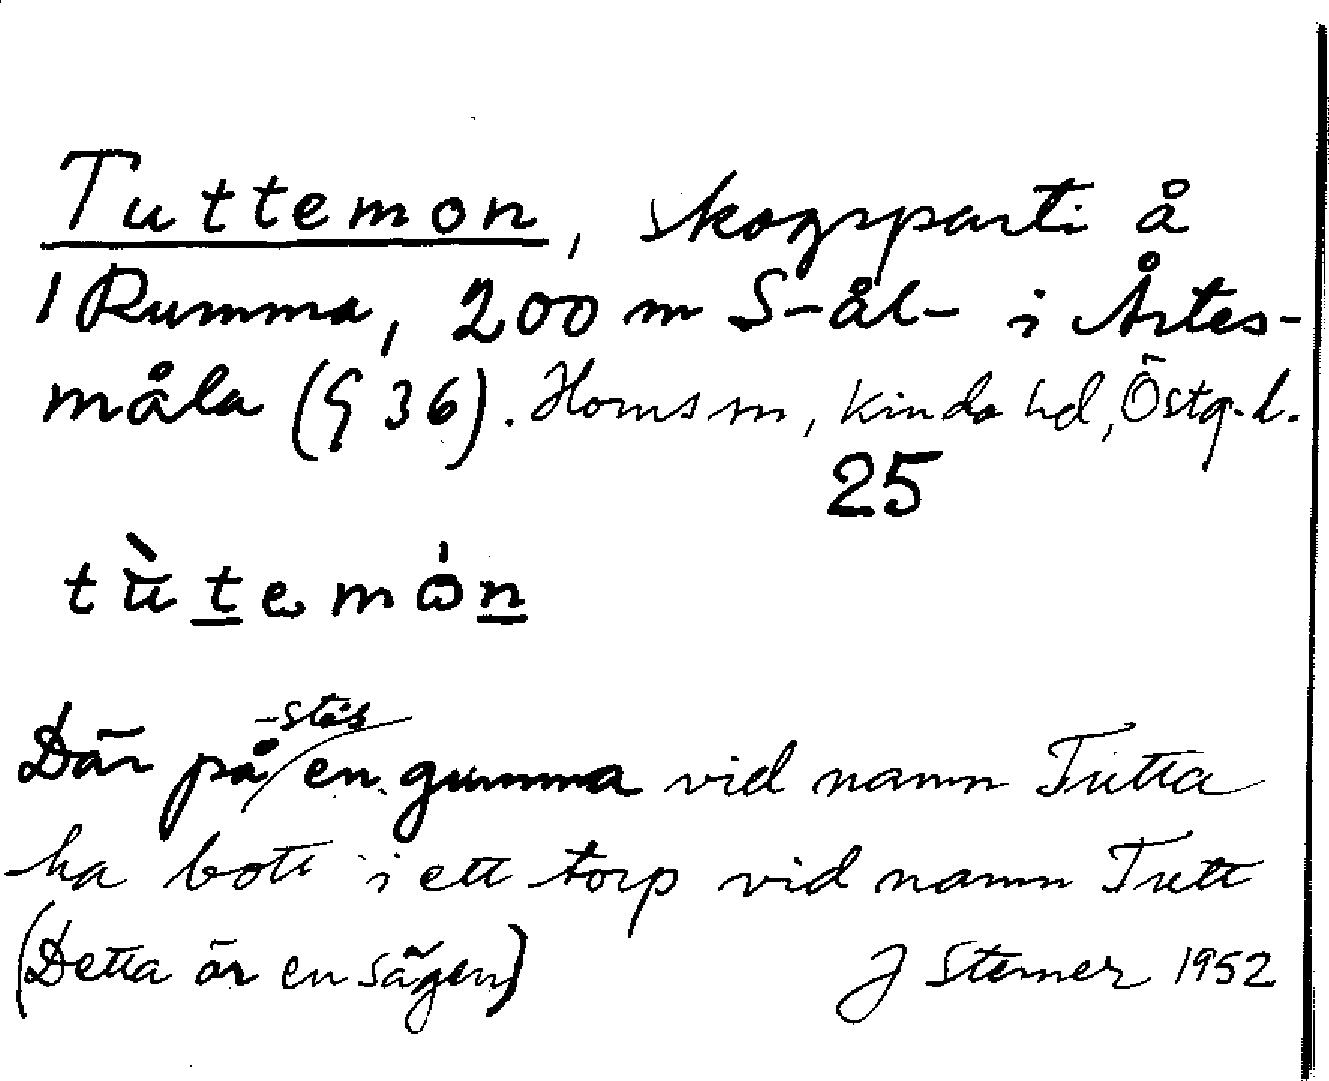 Tuttemon, skogsparti å
1 Rumma, 200 m S-ål- i Årtes-
måla (§ 36). Horns sn, Kinda hd, Östg. l.
25
tùtemón
-stås
Där på en gumma vid namn Tutta
ha bott i ett torp vid namn Tutt
(Detta är en sägen) J Sterner 1952